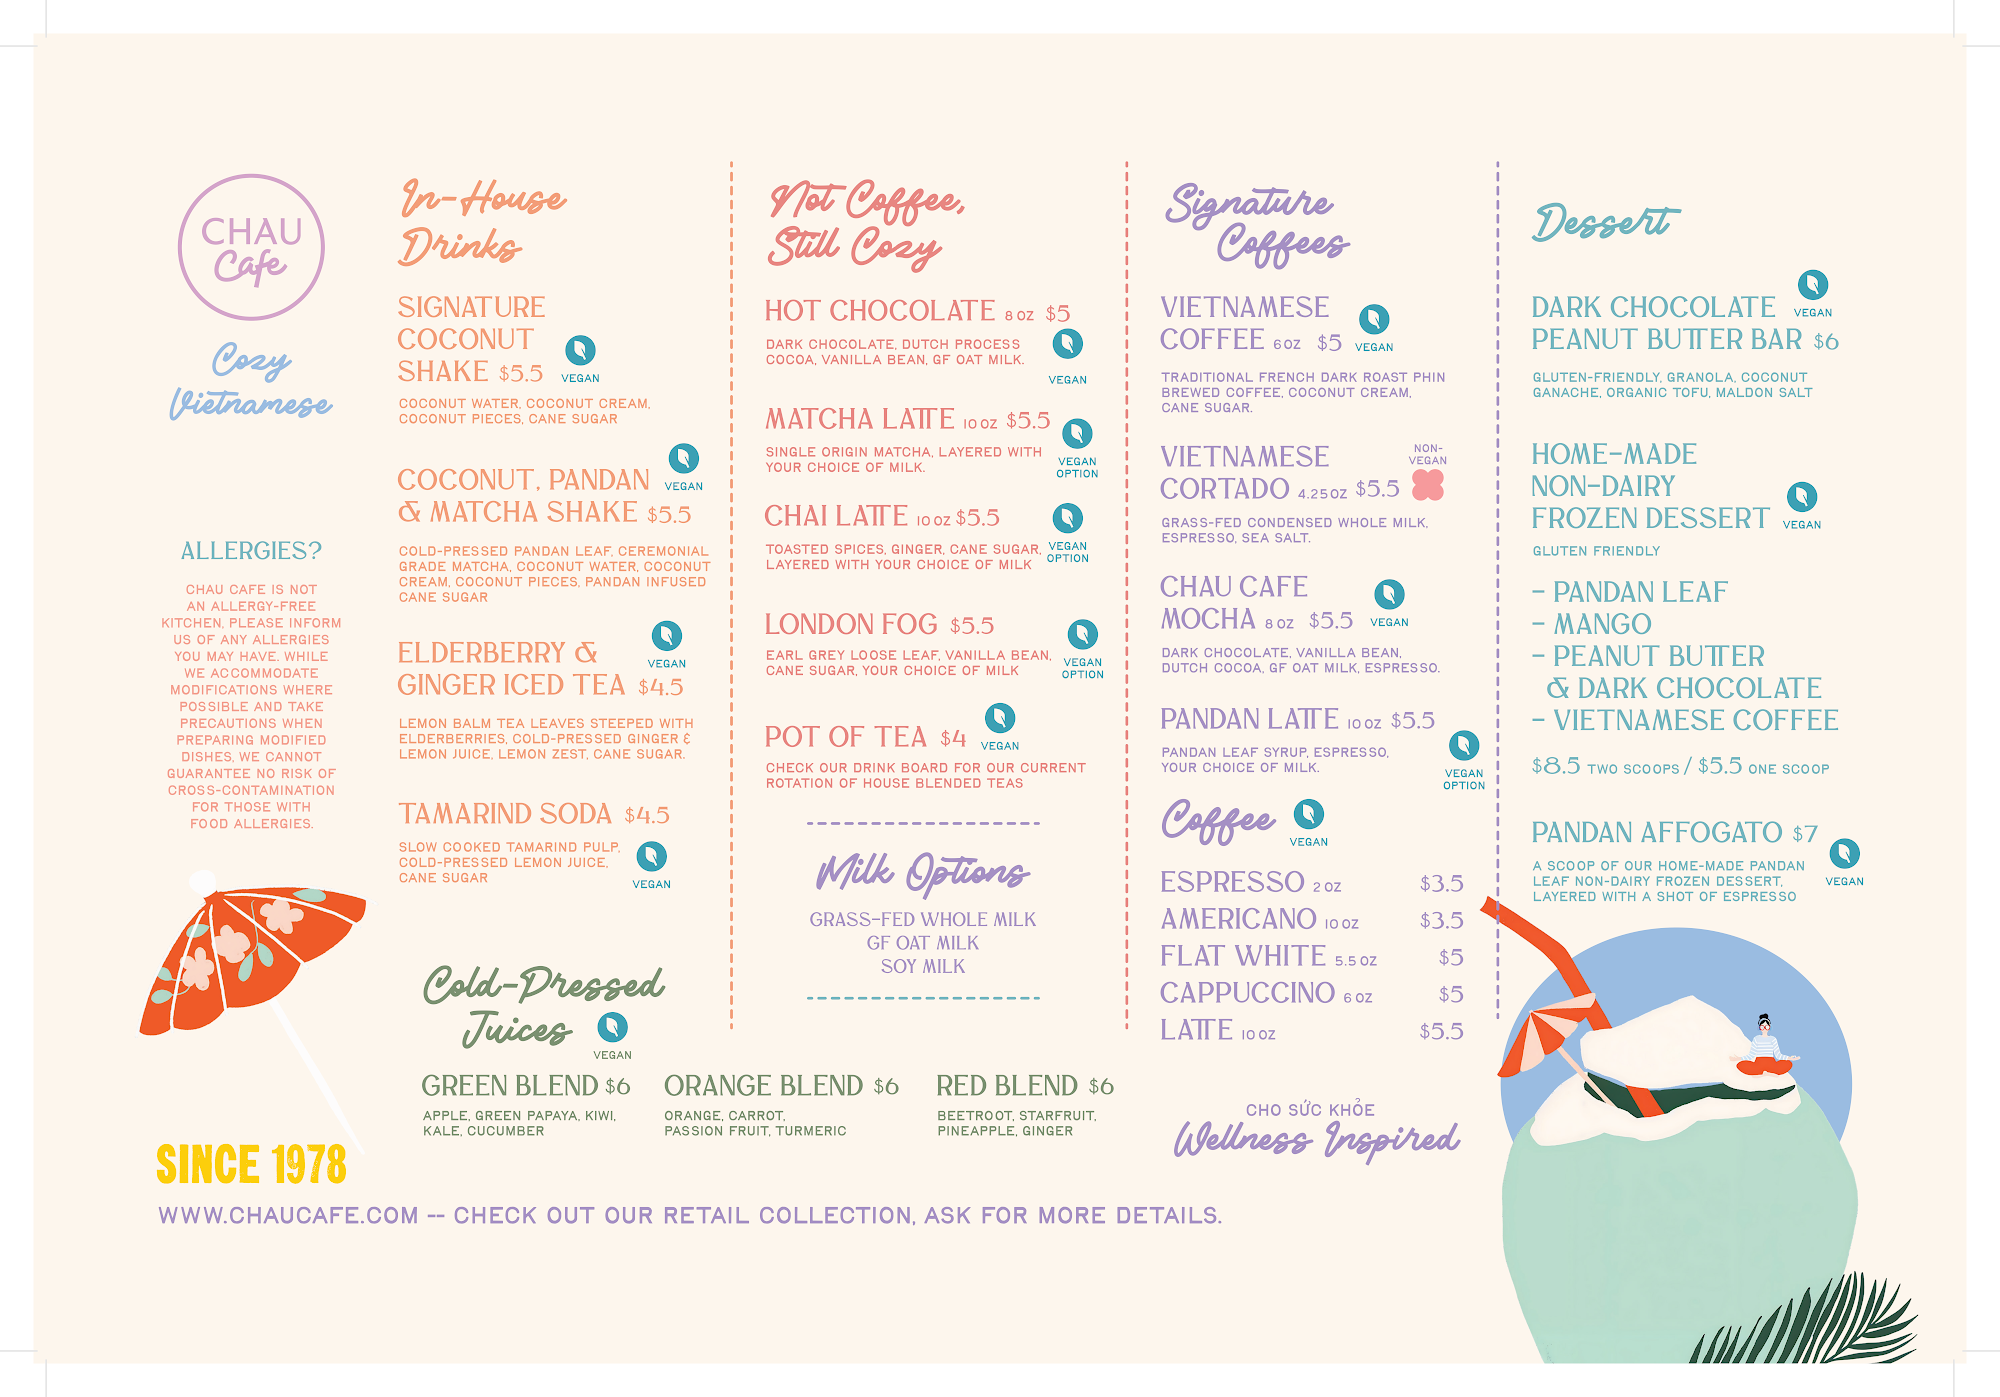 CHAU
Cafe
Cozy
Vietnamese
ALLERGIES?
CHAU CAFE IS NOT
AN ALLERGY-FREE
KITCHEN, PLEASE INFORM
US OF ANY ALLERGIES
YOU MAY HAVE. WHILE
WE ACCOMMODATE
MODIFICATIONS WHERE
POSSIBLE AND TAKE
PRECAUTIONS WHEN
PREPARING MODIFIED
DISHES, WE CANNOT
GUARANTEE NO RISK OF
CROSS-CONTAMINATION
FOR THOSE WITH
FOOD ALLERGIES.
In-House
Drinks
SIGNATURE
COCONUT
SHAKE $5.5
VEGAN
COCONUT WATER, COCONUT CREAM,
COCONUT PIECES, CANE SUGAR
COCONUT, PANDAN
& MATCHA SHAKE $5.5
VEGAN
COLD-PRESSED PANDAN LEAF, CEREMONIAL
GRADE MATCHA, COCONUT WATER, COCONUT
CREAM, COCONUT PIECES, PANDAN INFUSED
CANE SUGAR
ELDERBERRY &
GINGER ICED TEA $4.5
VEGAN
LEMON BALM TEA LEAVES STEEPED WITH
ELDERBERRIES, COLD-PRESSED GINGER &
LEMON JUICE, LEMON ZEST, CANE SUGAR.
TAMARIND SODA $4.5
SLOW COOKED TAMARIND PULP,
COLD-PRESSED LEMON JUICE,
CANE SUGAR
VEGAN
Not Coffee,
Still Cozy
HOT CHOCOLATE 8 OZ $5
DARK CHOCOLATE, DUTCH PROCESS
COCOA, VANILLA BEAN, GF OAT MILK.
VEGAN
MATCHA LATTE 10 OZ $5.5
SINGLE ORIGIN MATCHA, LAYERED WITH
YOUR CHOICE OF MILK.
VEGAN
OPTION
CHAI LATTE 10 OZ $5.5
TOASTED SPICES, GINGER, CANE SUGAR,
LAYERED WITH YOUR CHOICE OF MILK
VEGAN
OPTION
LONDON FOG $5.5
EARL GREY LOOSE LEAF, VANILLA BEAN,
CANE SUGAR, YOUR CHOICE OF MILK
VEGAN
OPTION
POT OF TEA $4
VEGAN
CHECK OUR DRINK BOARD FOR OUR CURRENT
ROTATION OF HOUSE BLENDED TEAS
Milk Options
GRASS-FED WHOLE MILK
GF OAT MILK
SOY MILK
Signature
Coffees
VIETNAMESE
COFFEE 6 OZ $5
VEGAN
TRADITIONAL FRENCH DARK ROAST PHIN
BREWED COFFEE, COCONUT CREAM,
CANE SUGAR.
VIETNAMESE
CORTADO 4.25 OZ $5.5
NON-
VEGAN
GRASS-FED CONDENSED WHOLE MILK,
ESPRESSO, SEA SALT.
CHAU CAFE
MOCHA 8 OZ $5.5
VEGAN
DARK CHOCOLATE, VANILLA BEAN,
DUTCH COCOA, GF OAT MILK, ESPRESSO.
PANDAN LATTE 10 OZ $5.5
PANDAN LEAF SYRUP, ESPRESSO,
YOUR CHOICE OF MILK.
VEGAN
OPTION
Coffee
VEGAN
ESPRESSO 2 OZ $3.5
AMERICANO 10 OZ $3.5
FLAT WHITE 5.5 OZ $5
CAPPUCCINO 6 OZ $5
LATTE 10 OZ $5.5
Dessert
DARK CHOCOLATE
PEANUT BUTTER BAR $6
VEGAN
GLUTEN-FRIENDLY, GRANOLA, COCONUT
GANACHE, ORGANIC TOFU, MALDON SALT
HOME-MADE
NON-DAIRY
FROZEN DESSERT
VEGAN
GLUTEN FRIENDLY
- PANDAN LEAF
- MANGO
- PEANUT BUTTER
& DARK CHOCOLATE
- VIETNAMESE COFFEE
$8.5 TWO SCOOPS / $5.5 ONE SCOOP
PANDAN AFFOGATO $7
A SCOOP OF OUR HOME-MADE PANDAN
LEAF NON-DAIRY FROZEN DESSERT,
LAYERED WITH A SHOT OF ESPRESSO
VEGAN
Cold-Pressed
Juices
VEGAN
GREEN BLEND $6
APPLE, GREEN PAPAYA, KIWI,
KALE, CUCUMBER
ORANGE BLEND $6
ORANGE, CARROT,
PASSION FRUIT, TURMERIC
RED BLEND $6
BEETROOT, STARFRUIT,
PINEAPPLE, GINGER
CHO SỨC KHỎE
Wellness Inspired
SINCE 1978
WWW.CHAUCAFE.COM -- CHECK OUT OUR RETAIL COLLECTION, ASK FOR MORE DETAILS.